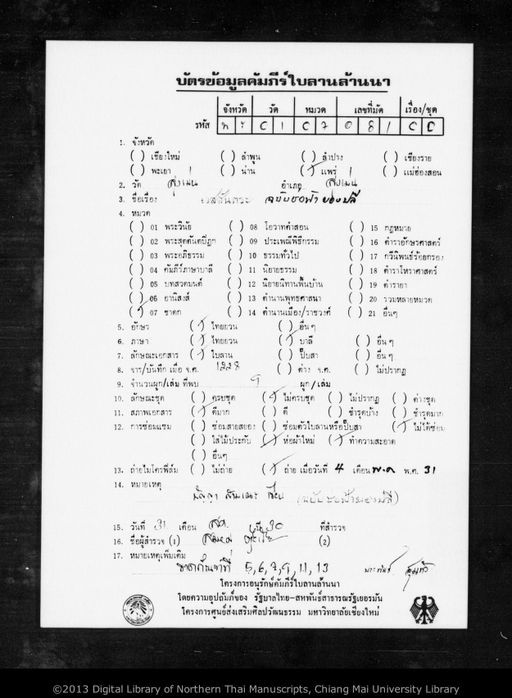 บัตรข้อมูลคัมภีร์ใบลานล้านนา
จังหวัด วัด หมวด เลขที่มัด เรื่อง/ชุด
รหัส
1. จังหวัด
( ) เชียงใหม่ ( ) ลำพูน ( ) ลำปาง ( ) เชียงราย
( ) พะเยา ( ) น่าน (/) แพร่ ( ) แม่ฮ่องสอน
2. วัด สูงเม่น อำเภอ สูงเม่น
3. ชื่อเรื่อง
4. หมวด
( ) 01 พระวินัย ( ) 08 โอวาทคำสอน ( ) 15 กฎหมาย
( ) 02 พระสุตตันตปิฎก ( ) 09 ประเพณีพิธีกรรม ( ) 16 ตำราอักษรศาสตร์
( ) 03 พระอภิธรรม ( ) 10 ธรรมทั่วไป ( ) 17 กวีนิพนธ์ร้อยกรอง
( ) 04 คัมภีร์ภาษาบาลี ( ) 11 นิยายธรรม ( ) 18 ตำราโหราศาสตร์
( ) 05 บทสวดมนต์ ( ) 12 นิยายนิทานพื้นบ้าน ( ) 19 ตำรายา
( ) 06 อานิสงส์ ( ) 13 ตำนานพุทธศาสนา ( ) 20 รวมหลายหมวด
(/) 07 ชาดก ( ) 14 ตำนานเมือง/ราชวงศ์ ( ) 21 อื่นๆ
5. อักษร (/) ไทยยวน ( ) อื่นๆ
6. ภาษา (/) ไทยยวน (/) บาลี ( ) อื่นๆ
7. ลักษณะเอกสาร (/) ใบลาน ( ) ปั๊บสา ( ) อื่นๆ
8. จาร/บันทึก เมื่อ จ.ศ. ( ) ต่าง จ.ศ. ( ) ไม่ปรากฏ
9. จำนวนผูก/เล่ม ที่พบ 9 ผูก/เล่ม
10. ลักษณะชุด ( ) ครบชุด (/) ไม่ครบชุด ( ) ไม่ปรากฏ ( ) ต่างชุด
11. สภาพเอกสาร (/) ดีมาก ( ) ดี ( ) ชำรุดบ้าง ( ) ชำรุดมาก
12. การซ่อมแซม ( ) ซ่อมสายสยอง ( ) ซ่อมตัวใบลานหรือปั๊บสา (/) ไม่ได้ซ่อม
( ) ใส่ไม้ประกับ (/) ห่อผ้าใหม่ (/) ทำความสะอาด
( ) อื่นๆ
13. ถ่ายไมโครฟิล์ม ( ) ไม่ถ่าย (/) ถ่าย เมื่อวันที่ 4 เดือน พ.ค. พ.ศ. 31
14. หมายเหตุ
15. วันที่ 31 เดือน ปี 30 ที่สำรวจ
16. ชื่อผู้สำรวจ (1) (2)
17. หมายเหตุเพิ่มเติม
5, 6, 7, 9, 11, 13
โครงการอนุรักษ์คัมภีร์ใบลานล้านนา
โดยความอุปถัมภ์ของ รัฐบาลไทย-สหพันธ์สาธารณรัฐเยอรมัน
โครงการศูนย์ส่งเสริมศิลปวัฒนธรรม มหาวิทยาลัยเชียงใหม่
©2013 Digital Library of Northern Thai Manuscripts, Chiang Mai University Library